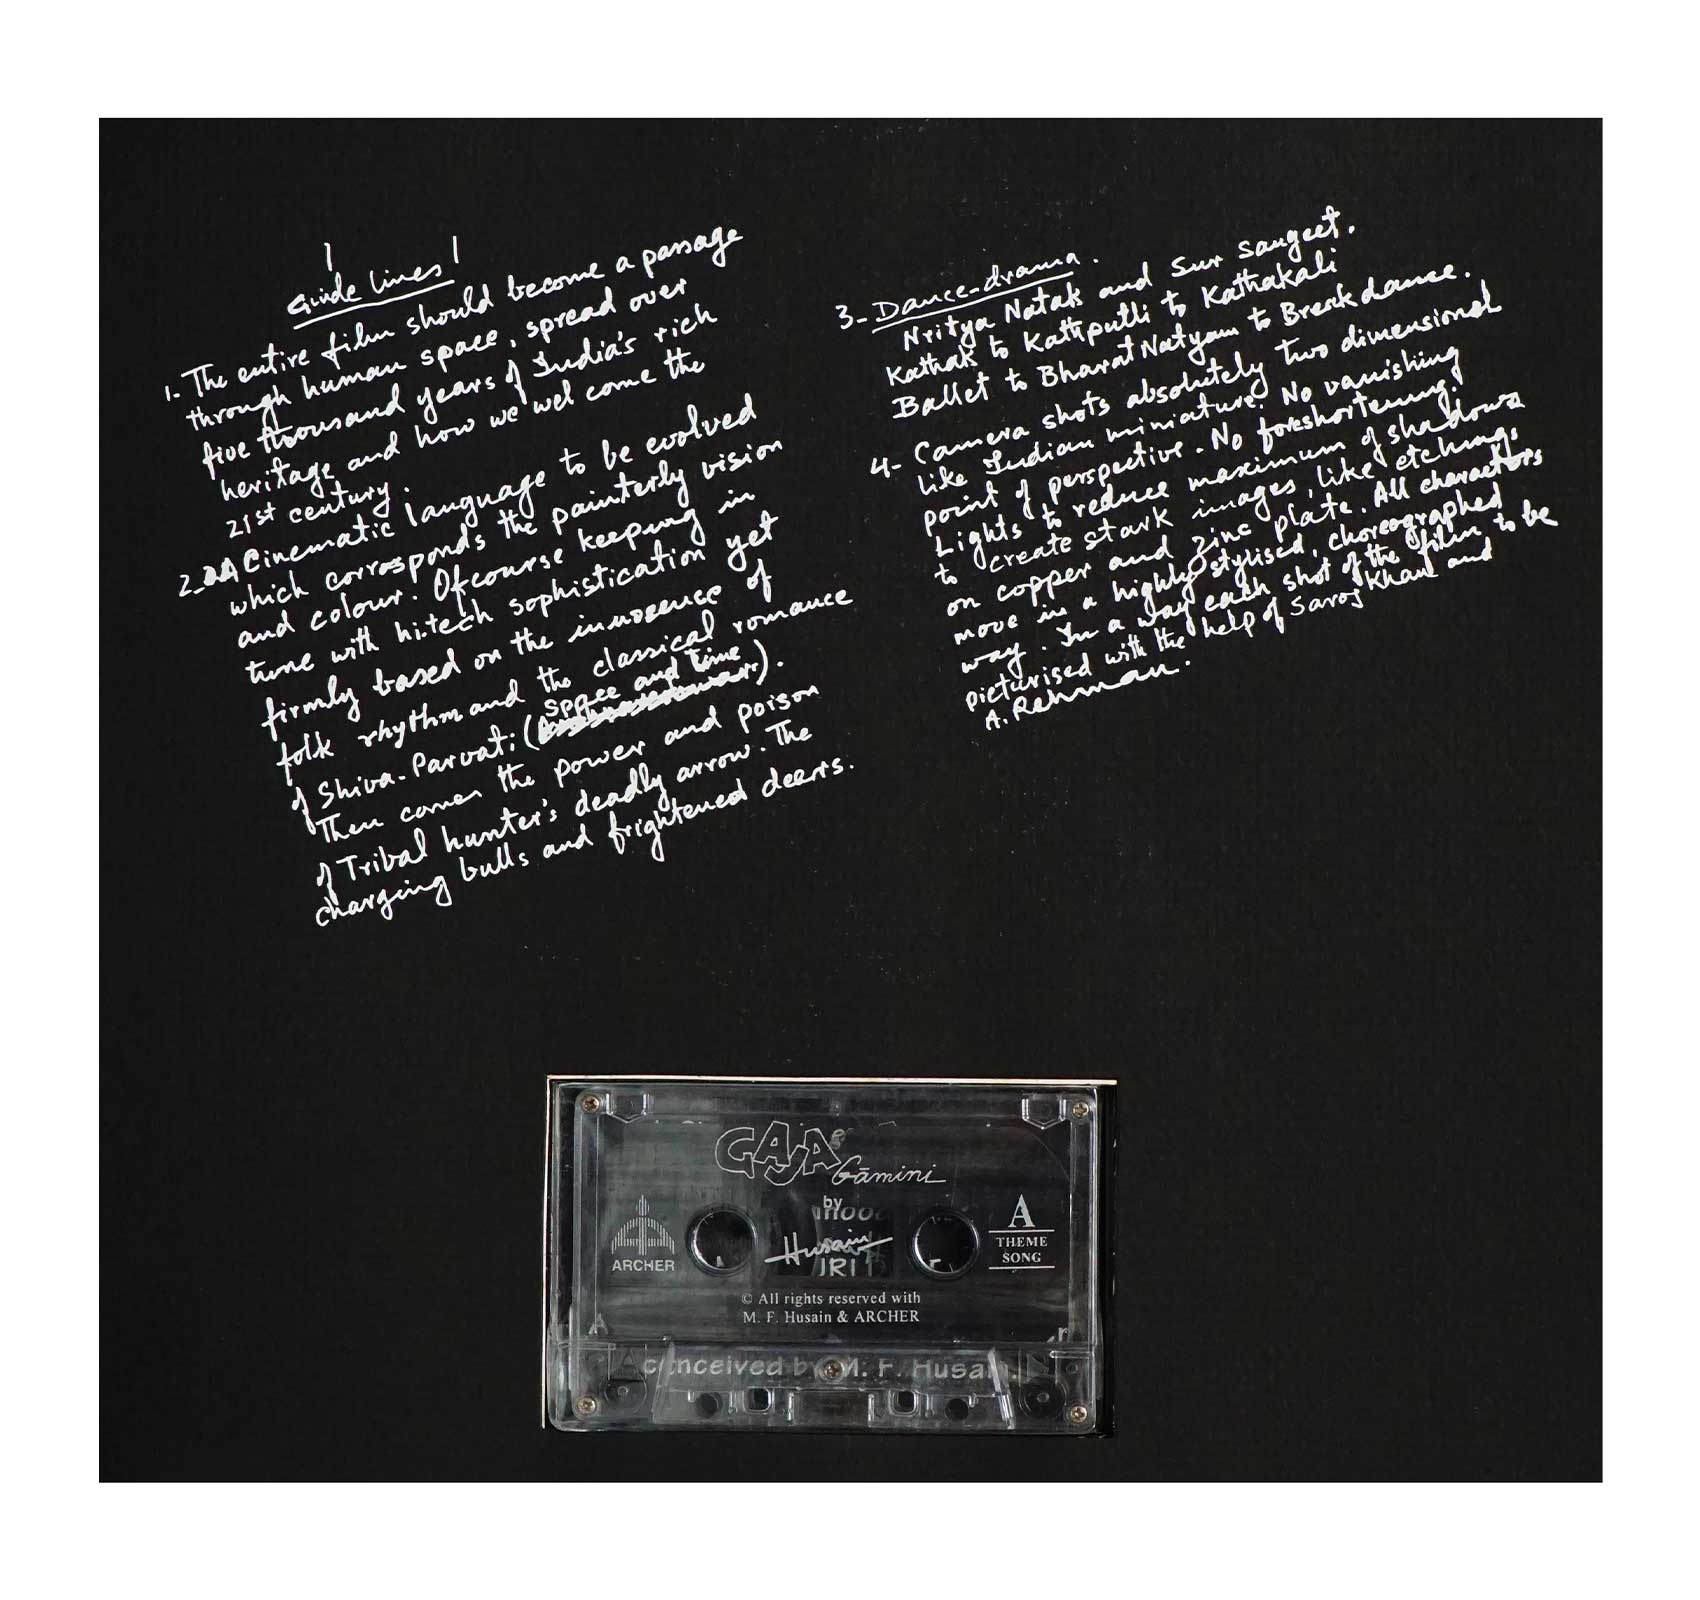 Guide lines
1. The entire film should become a passage
through human space, spread over
five thousand years of India's rich
heritage and how we wel come the
21st century.
2_ A Cinematic language to be evolved
which corrosponds the painterly vision
and colour. Ofcourse keeping in
tune with hi-tech sophistication yet
firmly based on the innosence of
folk rhythm and the classical romance
of Shiva-Parvati (space and time).
Then comes the power and poison
of Tribal hunter's deadly arrow. The
charging bulls and frightened deers.
3- Dance-drama.
Nritya Natak and Sur Sangeet.
Kathak to Kathputli to Kathakali
Ballet to Bharat Natyam to Break dance.
4- Camera shots absolutely two dimensional
like Indian miniature. No vanishing
point of perspective. No foreshortening.
Lights to reduce maximum of shadows
to create stark images, like etchings
on copper and zinc plate. All charactors
move in a highly stylised, choreographed
way. In a way each shot of the film to be
picturised with the help of Saroj Khan and
A. Rehman.
GAJA Gāmini
by
Husain
ARCHER
A
THEME
SONG
© All rights reserved with
M. F. Husain & ARCHER
conceived by M. F. Husain.